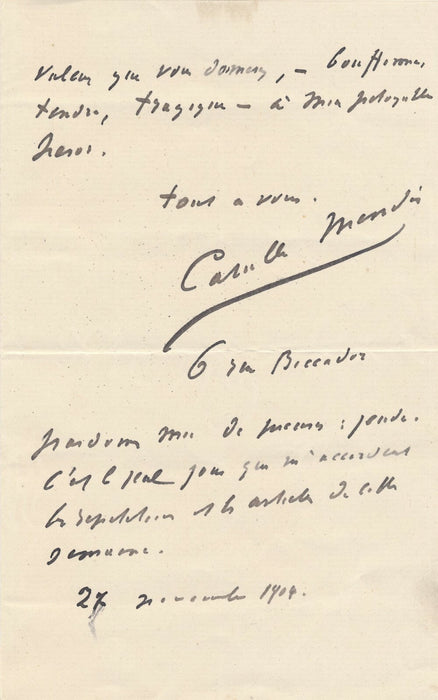 valeur que vous donnez, – bouffonne,
tendre, tragique – à mon pitoyable
héros.
tout à vous.
Catulle Mendès
6 rue Boccador
de : jeudi.
C'est le seul jour que m'accordent
les répétitions et les articles de cette
semaine.
27 novembre 1904.